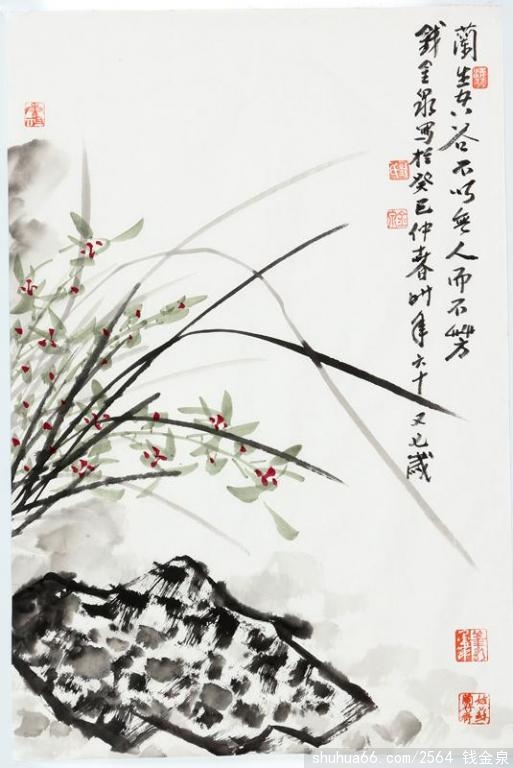 蘭生空谷不以無人而不芳
錢金泉寫於癸巳仲春時年六十又七歲
shuhua66.com/2564 钱金泉